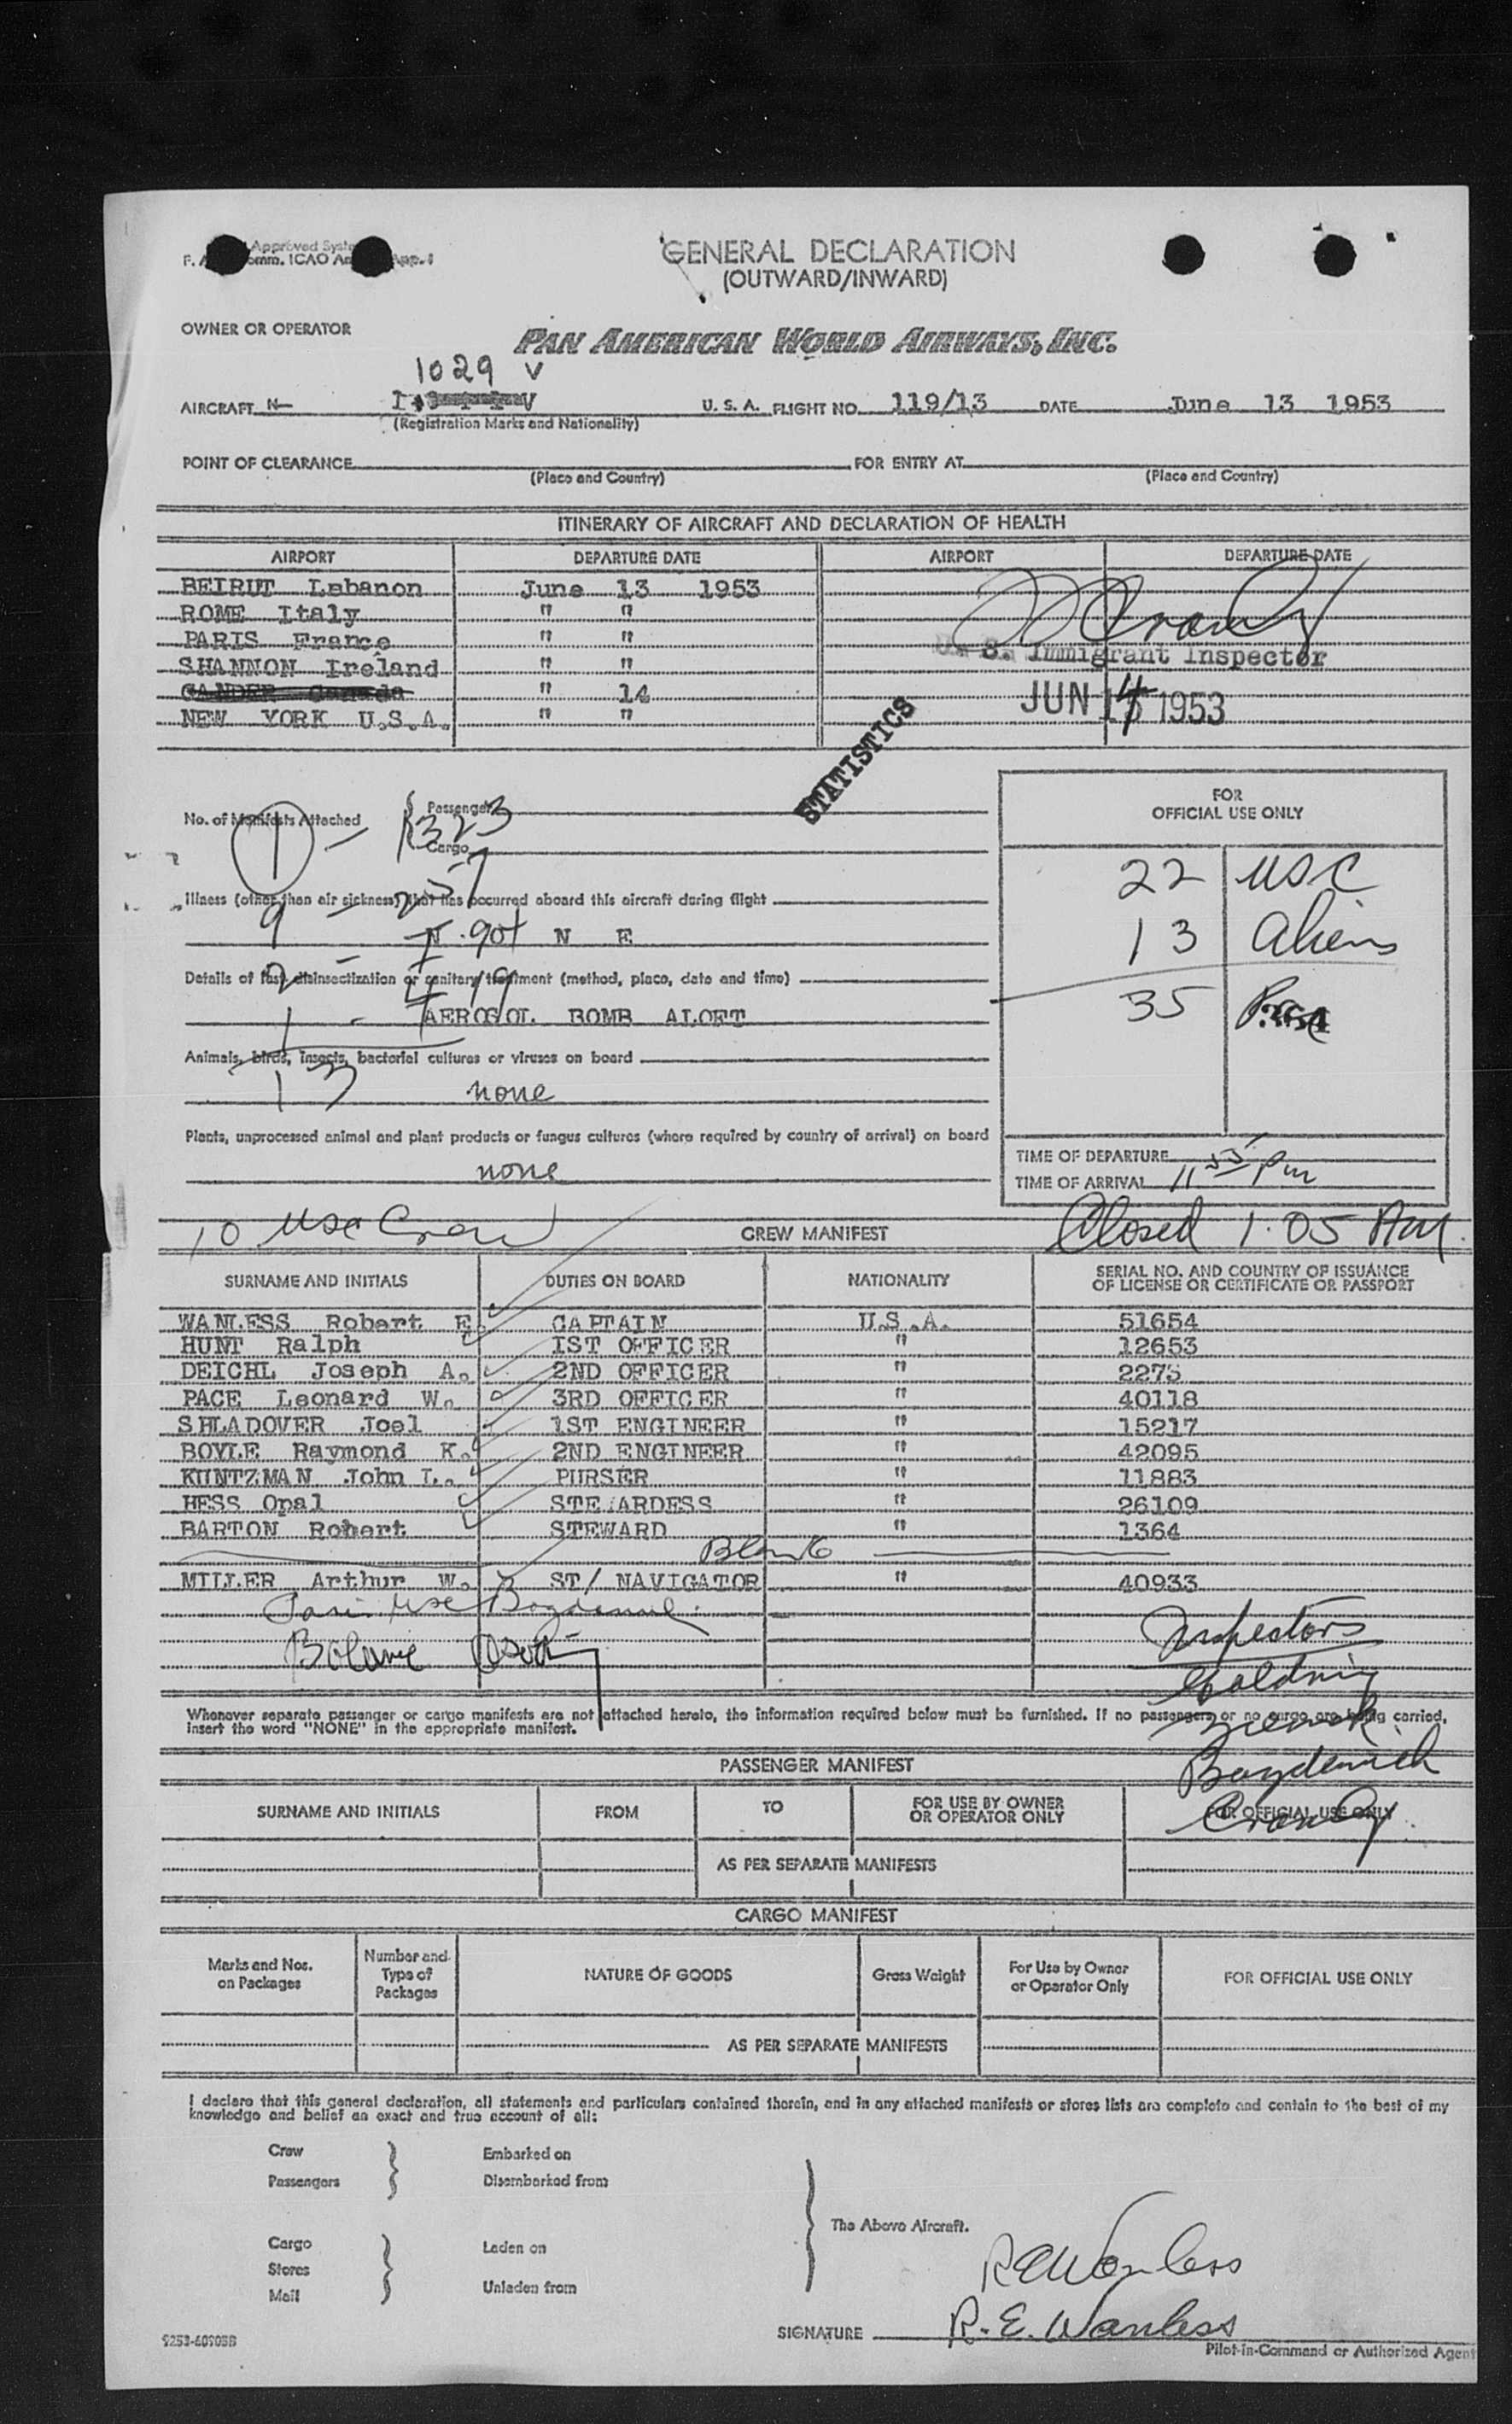 Approved
F. omm. ICAO App. I
GENERAL DECLARATION
(OUTWARD/INWARD)
OWNER OR OPERATOR
PAN AMERICAN WORLD AIRWAYS, INC.
1029 V
AIRCRAFT N- V U. S. A. FLIGHT NO. 119/13 DATE June 13 1953
(Registration Marks and Nationality)
POINT OF CLEARANCE FOR ENTRY AT
(Place and Country) (Place and Country)
ITINERARY OF AIRCRAFT AND DECLARATION OF HEALTH
AIRPORT DEPARTURE DATE AIRPORT DEPARTURE DATE
BEIRUT Lebanon June 13 1953
ROME Italy " "
PARIS France " "
SHANNON Ireland " "
U. S. Immigrant Inspector
GANDER Canada " 14
NEW YORK U.S.A. " "
JUN 14 1953
STATISTICS
No. of Manifests Attached
Passenger
Cargo
1 - 323
Illness (other than air sickness) that has occurred aboard this aircraft during flight
9 - 257
N N E
Details of last disinsectization or sanitary treatment (method, place, date and time)
2
AEROSOL BOMB ALOFT
1 -
Animals, birds, insects, bacterial cultures or viruses on board
13
none
Plants, unprocessed animal and plant products or fungus cultures (where required by country of arrival) on board
none
FOR
OFFICIAL USE ONLY
22 USC
13 Aliens
35
TIME OF DEPARTURE
TIME OF ARRIVAL 11 55 Pm
10 Usc Crew CREW MANIFEST Closed 1:05 AM.
SURNAME AND INITIALS DUTIES ON BOARD NATIONALITY SERIAL NO. AND COUNTRY OF ISSUANCE
OF LICENSE OR CERTIFICATE OR PASSPORT
WANLESS Robert E. CAPTAIN U.S.A. 51654
HUNT Ralph 1ST OFFICER " 12653
DEICHL Joseph A. 2ND OFFICER " 2275
PACE Leonard W. 3RD OFFICER " 40118
SHLADOVER Joel 1ST ENGINEER " 15217
BOYLE Raymond K. 2ND ENGINEER " 42095
KUNTZMAN John L. PURSER " 11883
HESS Opal STEWARDESS " 26109
BARTON Robert STEWARD " 1364
Blank
MILLER Arthur W. ST/ NAVIGATOR " 40933
Inspectors
Whenever separate passenger or cargo manifests are not attached hereto, the information required below must be furnished. If no passengers or no cargo are being carried,
insert the word "NONE" in the appropriate manifest.
PASSENGER MANIFEST
SURNAME AND INITIALS FROM TO FOR USE BY OWNER
OR OPERATOR ONLY FOR OFFICIAL USE ONLY
AS PER SEPARATE MANIFESTS
CARGO MANIFEST
Marks and Nos.
on Packages Number and
Type of
Packages NATURE OF GOODS Gross Weight For Use by Owner
or Operator Only FOR OFFICIAL USE ONLY
AS PER SEPARATE MANIFESTS
I declare that this general declaration, all statements and particulars contained therein, and in any attached manifests or stores lists are complete and contain to the best of my
knowledge and belief an exact and true account of all:
Crew Embarked on
Passengers Disembarked from
The Above Aircraft.
Cargo Laden on
Stores
Mail Unladen from
R E Wanless
SIGNATURE R. E. Wanless
Pilot-in-Command or Authorized Agent